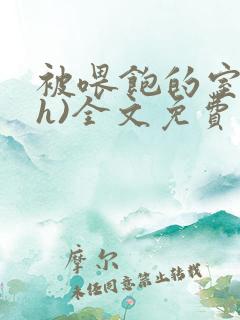 被喂饱的室
h)全文免费
摩尔
未经同意禁止转载